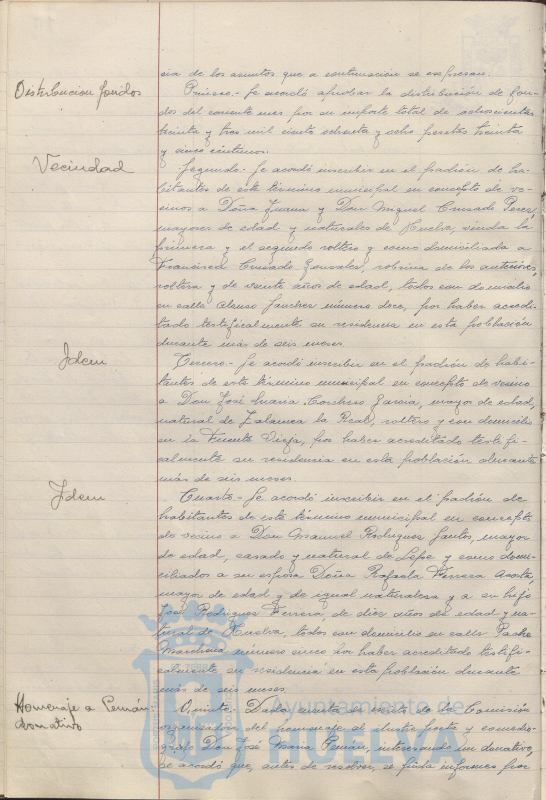 cia de los asuntos que a continuación se expresan.
Distribucion fondos
Primero.- Se acordó aprobar la distribución de fon-
dos del corriente mes por su importe total de ochocientas
treinta y tres mil ciento ochenta y ocho pesetas treinta
y cinco centimos.
Vecindad
Segundo.- Se acordó inscribir en el padrón de ha-
bitantes de este término municipal en concepto de ve-
cinos a Doña Juana y Don Miguel Cruzado Perez,
mayores de edad y naturales de Huelva, viuda la
primera y el segundo soltero y como domiciliada a
Francisca Cruzado Gonzalez, sobrina de los anteriores,
soltera y de veinte años de edad, todos con domicilio
en calle Alonso Sanchez número doce, por haber acredi-
tado testificalmente su residencia en esta población
durante más de seis meses.
Idem
Tercero.- Se acordó inscribir en el padrón de habi-
tantes de este término municipal en concepto de vecino
a Don José Maria Corchero Garcia, mayor de edad,
natural de Zalamea la Real, soltero y con domicilio
en la Fuente Vieja, por haber acreditado testifi-
calmente su residencia en esta población durante
más de seis meses.
Idem
Cuarto.- Se acordó inscribir en el padrón de
habitantes de este término municipal en concepto
de vecino a Don Manuel Rodriguez Santos, mayor
de edad, casado y natural de Lepe y como domi-
ciliados a su esposa Doña Rafaela Ferrera Acosta,
mayor de edad y de igual naturaleza y a su hijo
José Rodriguez Ferrera, de diez años de edad y na-
tural de Huelva, todos con domicilio en calle Padre
Marchena número cinco por haber acreditado testifi-
calmente su residencia en esta población durante
más de seis meses.
Homenaje a Pemán:
donativo
Quinto.- Dada cuenta de escrito de la Comisión
organizadora del homenaje al ilustre poeta y comedio-
grafo Don José Maria Pemán, interesando un donativo,
se acordó que, antes de resolver, se pida informes por
Ayuntamiento de
HUELVA